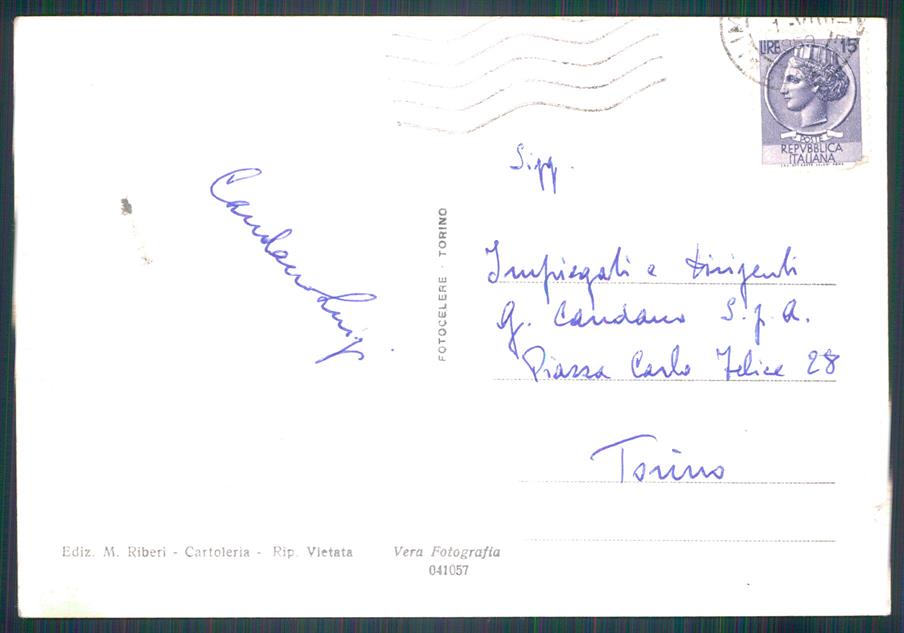 LIRE 15
POSTE
REPVBBLICA
ITALIANA
Sigg.
Impiegati e Dirigenti
G. Candano S.p.A.
Piazza Carlo Felice 28
Torino
Candano Luigi
FOTOCELERE - TORINO
Ediz. M. Riberi - Cartoleria - Rip. Vietata
Vera Fotografia
041057